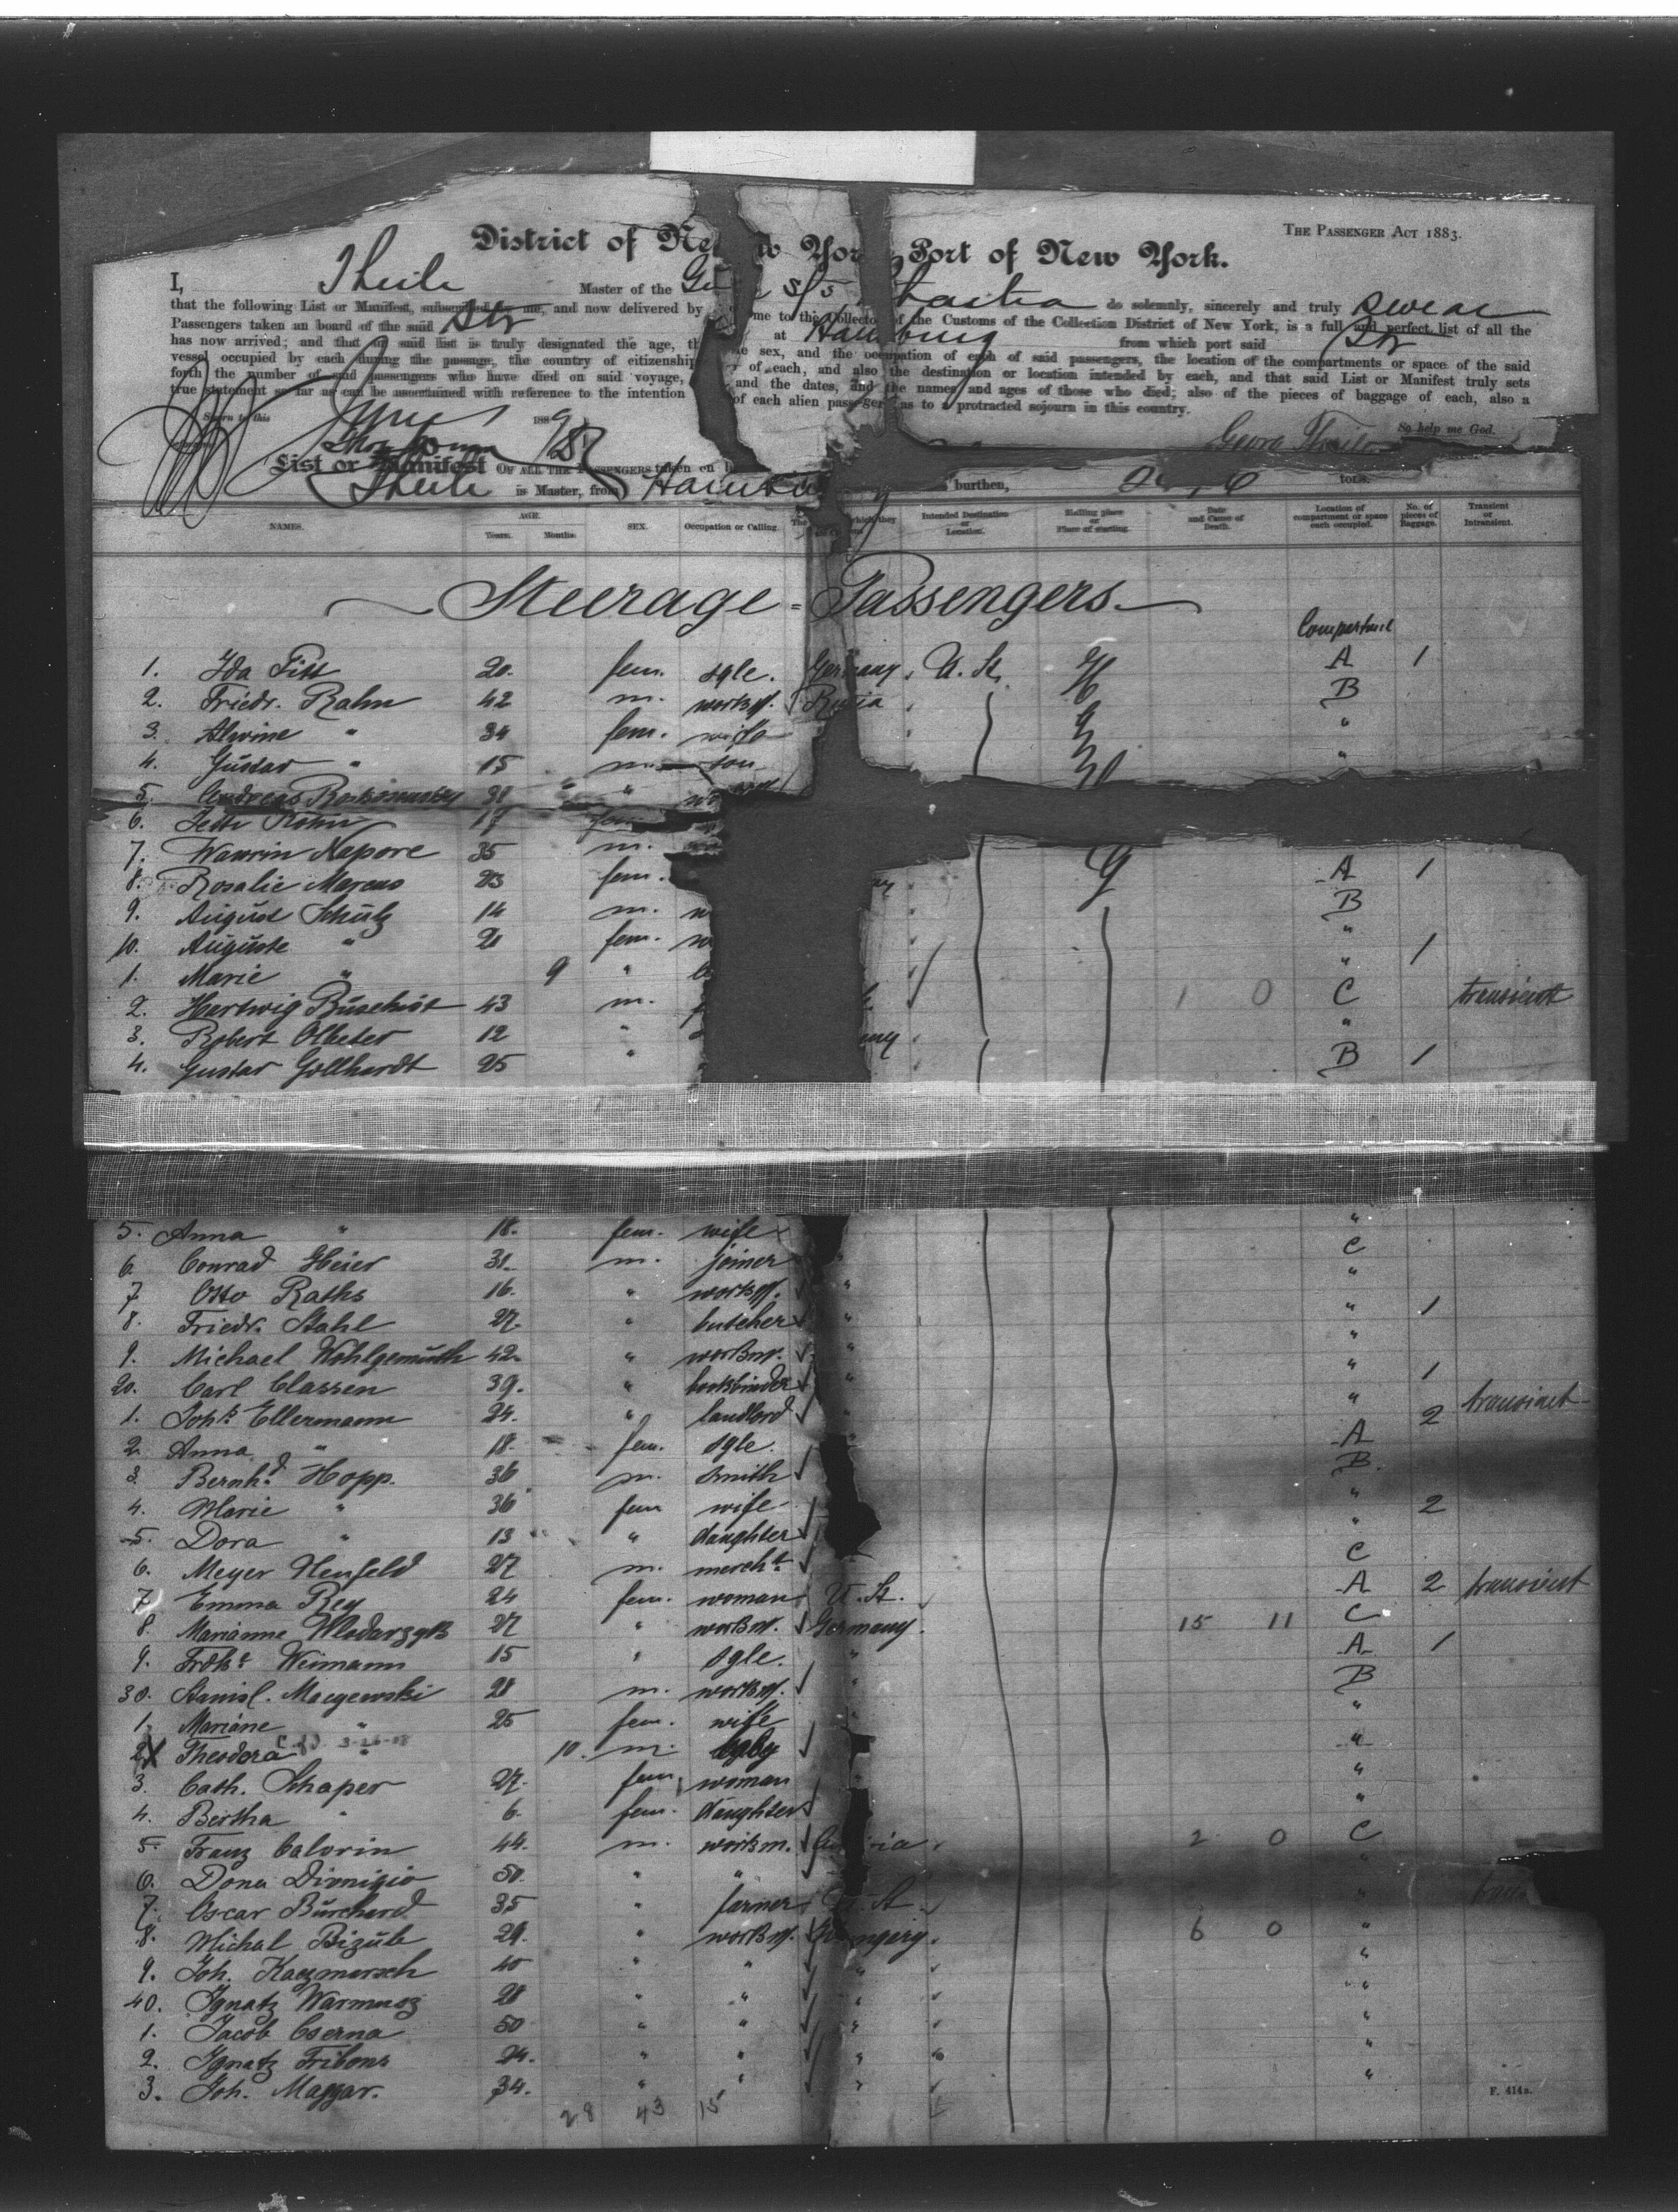 THE PASSENGER ACT 1883.
District of New York Port of New York.
I, Theile Master of the do solemnly, sincerely and truly swear
that the following List or Manifest, subscribed by me, and now delivered by me to the Collector of the Customs of the Collection District of New York, is a full and perfect list of all the
Passengers taken on board of the said Str at Hamburg from which port said Str
has now arrived; and that on said list is truly designated the age, the sex, and the occupation of each of said passengers, the location of the compartments or space of the said
vessel occupied by each during the passage, the country of citizenship of each, and also the destination or location intended by each, and that said List or Manifest truly sets
forth the number of said passengers who have died on said voyage, and the dates, and the names and ages of those who died; also of the pieces of baggage of each, also a
true statement so far as can be ascertained with reference to the intention of each alien passenger as to a protracted sojourn in this country.
Sworn to this 1889 So help me God.
Georg Theile
List or Manifest OF ALL THE PASSENGERS taken on burthen, tons.
Theile is Master, from Hamburg
NAMES. AGE. Years. Months. SEX. Occupation or Calling. The which they Intended Destination or Location. Halting place or Place of starting. Date and Cause of Death. Location of compartment or space each occupied. No. of pieces of Baggage. Transient or Intransient.
Steerage=Passengers
1. Ida 20. fem. sgle. Germany U. St. A 1
2. Friedr. Rahn 42 m. workm. Russia B
3. Alwine " 34 fem. wife "
4. Gustav " 15 m. son "
5. Andreas 31 "
6. 17
7. Wawrin Napore 35 m.
8. Rosalie Marcus 23 fem. A 1
9. August Schulz 14 m. B
10. Auguste " 21 fem. "
1. Marie " 9 " " 1
2. Hertwig 43 m. 1 0 C transient
3. Robert 12 " "
4. Gustav Gollhardt 25 " B 1
5. Anna " 18. fem. wife "
6. Conrad Heier 31. m. joiner " C
7. Otto Raths 16. " workm. " "
8. Friedr. Stahl 27. " butcher " " 1
9. Michael Wohlgemuth 42. " workm. " "
20. Carl Classen 39. " bookbinder " " 1
1. Johs. Ellermann 24. " landlord " 2 transient
2. Anna " 18. fem. sgle. A
3. Bernhd. Hopp. 36 m. smith B.
4. Marie " 36 fem wife " 2
5. Dora " 13 " daughter "
6. Meyer Henfeld 27 m. mercht. C
7. Emma Rey 24 fem. woman U. St. A 2 transient
8. Marianne Wlodarzyk 27 " workm. Germany. 15 11 C
9. Weimann 15 " sgle. " A 1
30. Stanisl. Macyewski 28 m. workm. " B
1. Mariane " 25 fem. wife "
2. Theodora " 10. m. baby "
3. Cath. Schaper 27. fem. woman " "
4. Bertha " 6. fem. daughter "
5. Franz Calovin 44. m. workm. Austria 2 0 C
6. Dona Dionigio 50. " "
7. Oscar Burchard 35 " farmer U. St. "
8. Michal Bizub 29. " workm. Hungary. 6 0 "
9. Joh. Kaczmarsch 40 " " " "
40. Ignatz Warmusz 28 " " " "
1. Jacob Cserna 50 " " " "
2. Ignatz Tribons 24. " " " "
3. Joh. Magyar. 34. " " " "
28 43 15
F. 414a.